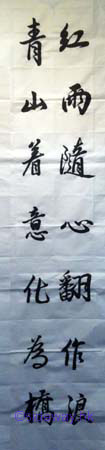 紅雨隨心翻作浪
青山着意化為橋